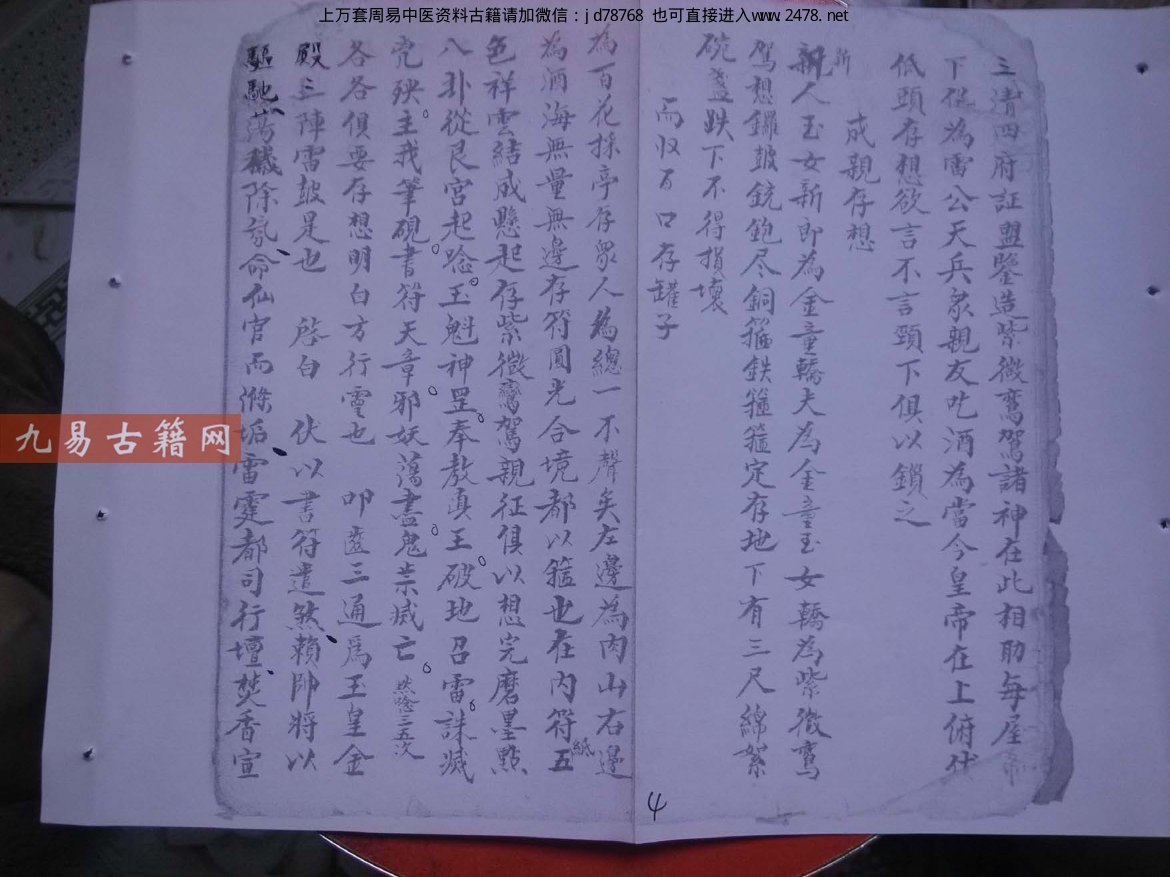 上万套周易中医资料古籍请加微信：jd78768 也可直接进入www.2478.net
三清四府証盟鑒造紫微鸞駕諸神在此相助每屋
下伬為雷公天兵眾親友吃酒為當今皇帝在上俯伏
低頭存想欲言不言頸下俱以鎖之
成親存想
新人玉女新郎為金童轎夫為金童玉女轎為紫微鸞
駕想鑼鼓銃鉋尽銅箍鉄箍箍定存地下有三尺綿絮
碗盞跌下不得損壞
而收百口存罐子
為百花採亭存眾人為總一不聲矣左邊為肉山右邊
為酒海無量無邊存符圓光合境都以箍也在內符紙五
色祥雲結成懸起存紫微鸞駕親征俱以想完磨墨點
八卦從艮宮起唸玉魁神罡奉敖真王破地召雷誅滅
兇殃主我筆硯書符天章邪妖蕩盡鬼祟滅亡然唸三五次
各各俱要存想明白方行也 叩三通爲玉皇金
殿三陣雷鼓是也 啓白 伏以書符遣煞賴帥將以
驅馳蕩穢除氛命仙官而滌垢雷霆都司行壇焚香宣
九易古籍网
4